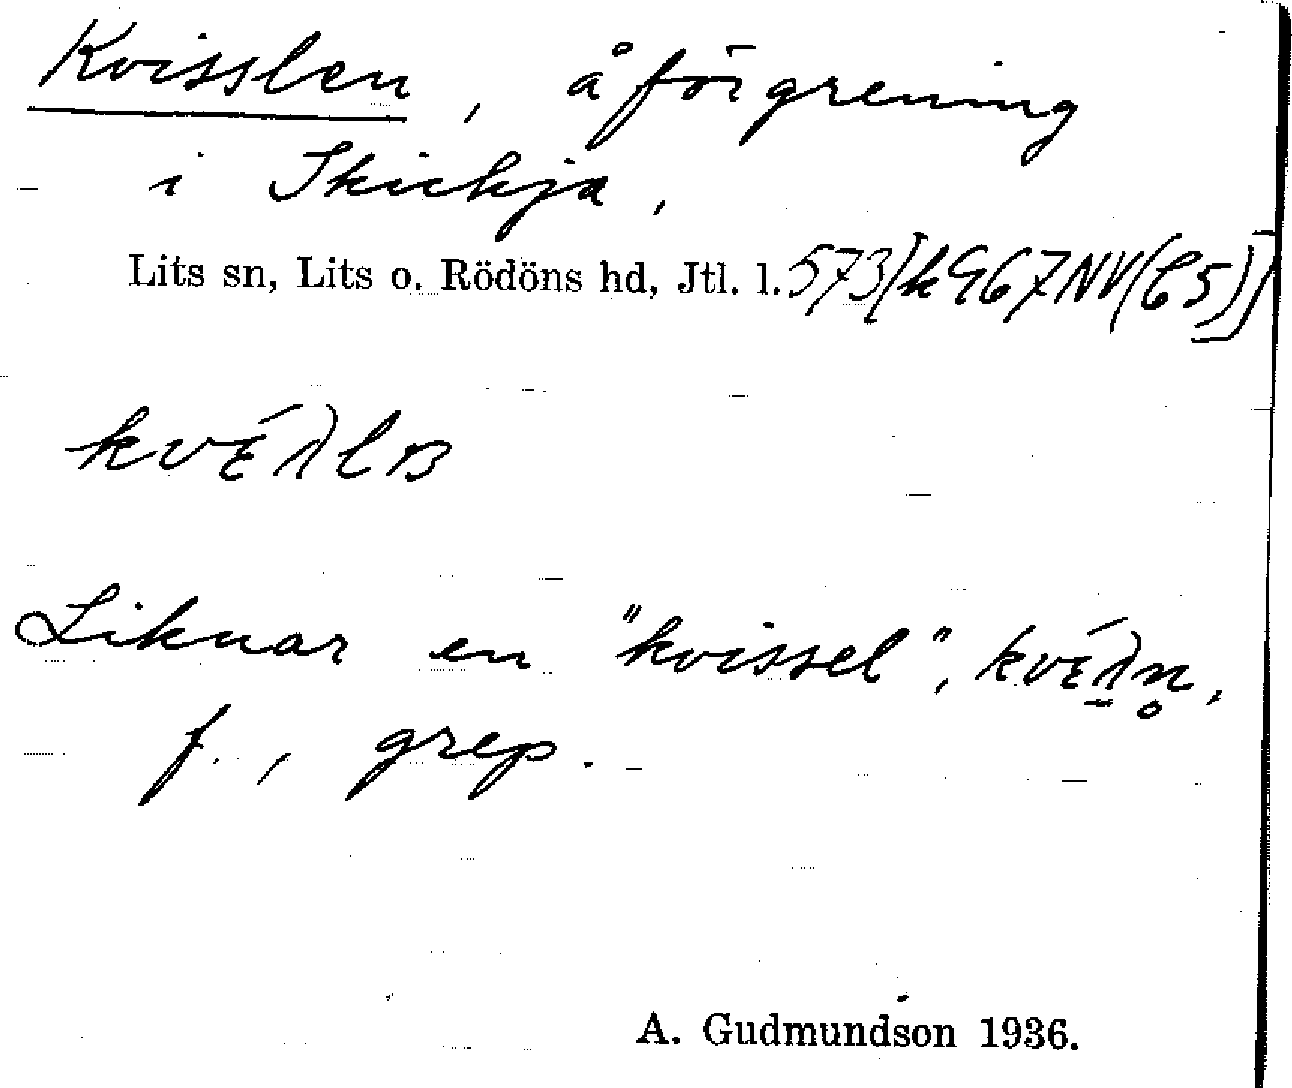 Kvisslen, åförgrening
i Skickja,
Lits sn, Lits o. Rödöns hd, Jtl. l. 573/k967NV(C5)
Liknar en "kvissel",
f., grep.
A. Gudmundson 1936.